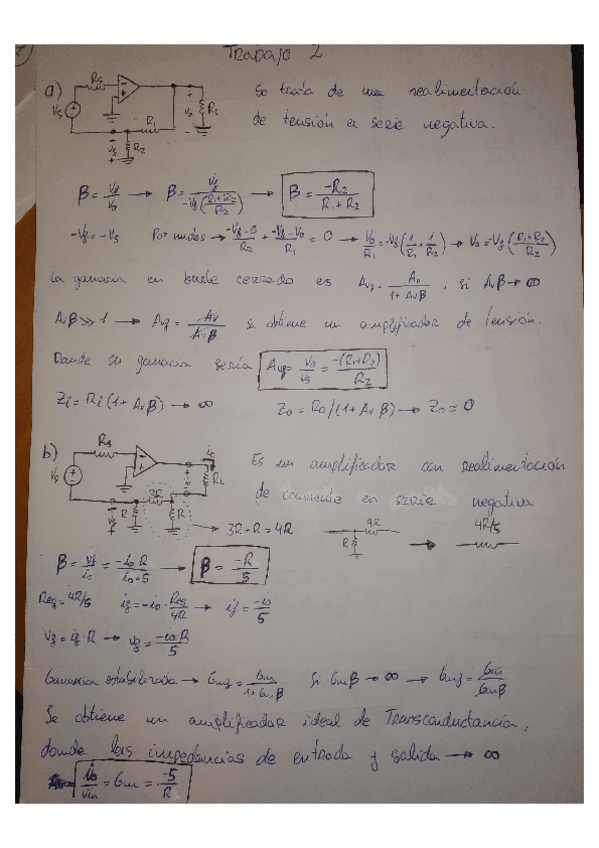 Trabajo 2
a) Rs Vs R1 R2 RL Vo Vf
Se trata de una realimentación
de tensión en serie negativa.
β = Vf/Vo → β = Vf/(-Vf((R1+R2)/R2)) → β = -R2/(R1+R2)
-Vf = -Vs Por nudos → (-Vf-0)/R2 + (-Vf-Vo)/R1 = 0 → Vo/R1 = -Vf(1/R1 + 1/R2) → Vo = -Vf((R1+R2)/R2)
La ganancia en bucle cerrado es Avf = Av/(1+Avβ), si Avβ → ∞
Avβ >> 1 → Avf = Av/(Avβ) se obtiene un amplificador de tensión.
Donde su ganancia sería Avf = Vo/Vs = -(R1+R2)/R2
Zi = Ri(1+Avβ) → ∞ Zo = Ro/(1+Avβ) → Zo ≈ 0
b) Rs Vs 3R R R RL io Vf
Es un amplificador con realimentación
de corriente en serie negativa
→ 3R+R = 4R R 4R → 4R/5
β = Vf/io = (-io·R)/(io·5) → β = -R/5
Req = 4R/5 if = -io·Req/4R → if = -io/5
Vf = if·R → Vf = -io·R/5
Ganancia estabilizada → Gmf = Gm/(1+Gmβ) Si Gmβ → ∞ → Gmf = Gm/(Gmβ)
Se obtiene un amplificador ideal de Transconductancia,
donde las impedancias de entrada y salida → ∞
io/Vin = Gm = -5/R